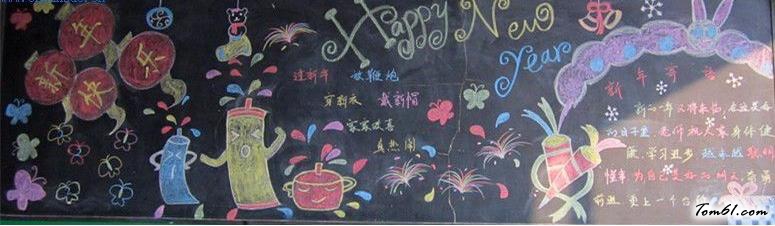 新年
快乐
Happy New
Year
过新年 放鞭炮
穿新衣 戴新帽
家家欢喜
真热闹
新年寄语
新的一年又将来临,在这美好
的日子里,老师祝大家身体健
康,学习进步,越来越聪明
懂事,为自己美好的明天,奋勇
前进,更上一个台
Tom61.com